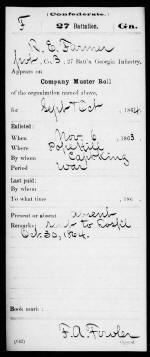 (Confederate.)
F 27 Battalion. Ga.
R. E. Farmer
Pvt, Co. B, 27 Batt'n Georgia Infantry.
Appears on
Company Muster Roll
of the organization named above,
for Sept & Oct, 1864.
Enlisted:
When Nov 6, 1863
Where
By whom
Period War
Last paid:
By whom
To what time , 186 .
Present or absent absent
Remarks: sent to Hospil
Oct. 30, 1864.
Book mark:
F. A. Fowler
(642) Copyist.